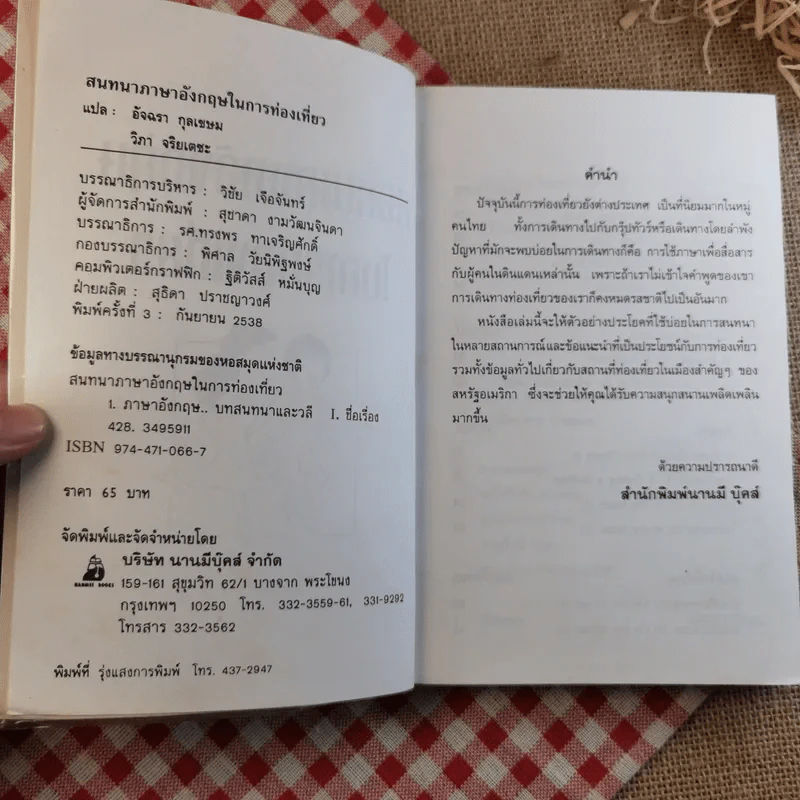 สนทนาภาษาอังกฤษในการท่องเที่ยว
แปล : อัจฉรา กุลเขษม
วิภา จริยเตชะ
บรรณาธิการบริหาร : วิชัย เจือจันทร์
ผู้จัดการสำนักพิมพ์ : สุชาดา งามวัฒนจินดา
บรรณาธิการ : รศ.ทรงพร ทาเจริญศักดิ์
กองบรรณาธิการ : พิศาล วัยนิพิฐพงษ์
คอมพิวเตอร์กราฟฟิก : ฐิติวัสส์ หมั่นบุญ
ฝ่ายผลิต : สุธิดา ปราชญาวงศ์
พิมพ์ครั้งที่ 3 : กันยายน 2538
ข้อมูลทางบรรณานุกรมของหอสมุดแห่งชาติ
สนทนาภาษาอังกฤษในการท่องเที่ยว
1. ภาษาอังกฤษ.. บทสนทนาและวลี I. ชื่อเรื่อง
428. 3495911
ISBN 974-471-066-7
ราคา 65 บาท
จัดพิมพ์และจัดจำหน่ายโดย
บริษัท นานมีบุ๊คส์ จำกัด
NANMEE BOOKS
159-161 สุขุมวิท 62/1 บางจาก พระโขนง
กรุงเทพฯ 10250 โทร. 332-3559-61, 331-9292
โทรสาร 332-3562
พิมพ์ที่ รุ่งแสงการพิมพ์ โทร. 437-2947
คำนำ
ปัจจุบันนี้การท่องเที่ยวยังต่างประเทศ เป็นที่นิยมมากในหมู่
คนไทย ทั้งการเดินทางไปกับกรุ๊ปทัวร์หรือเดินทางโดยลำพัง
ปัญหาที่มักจะพบบ่อยในการเดินทางก็คือ การใช้ภาษาเพื่อสื่อสาร
กับผู้คนในดินแดนเหล่านั้น เพราะถ้าเราไม่เข้าใจคำพูดของเขา
การเดินทางท่องเที่ยวของเราก็คงหมดรสชาติไปเป็นอันมาก
หนังสือเล่มนี้จะให้ตัวอย่างประโยคที่ใช้บ่อยในการสนทนา
ในหลายสถานการณ์และข้อแนะนำที่เป็นประโยชน์กับการท่องเที่ยว
รวมทั้งข้อมูลทั่วไปเกี่ยวกับสถานที่ท่องเที่ยวในเมืองสำคัญๆ ของ
สหรัฐอเมริกา ซึ่งจะช่วยให้คุณได้รับความสนุกสนานเพลิดเพลิน
มากขึ้น
ด้วยความปรารถนาดี
สำนักพิมพ์นานมี บุ๊คส์